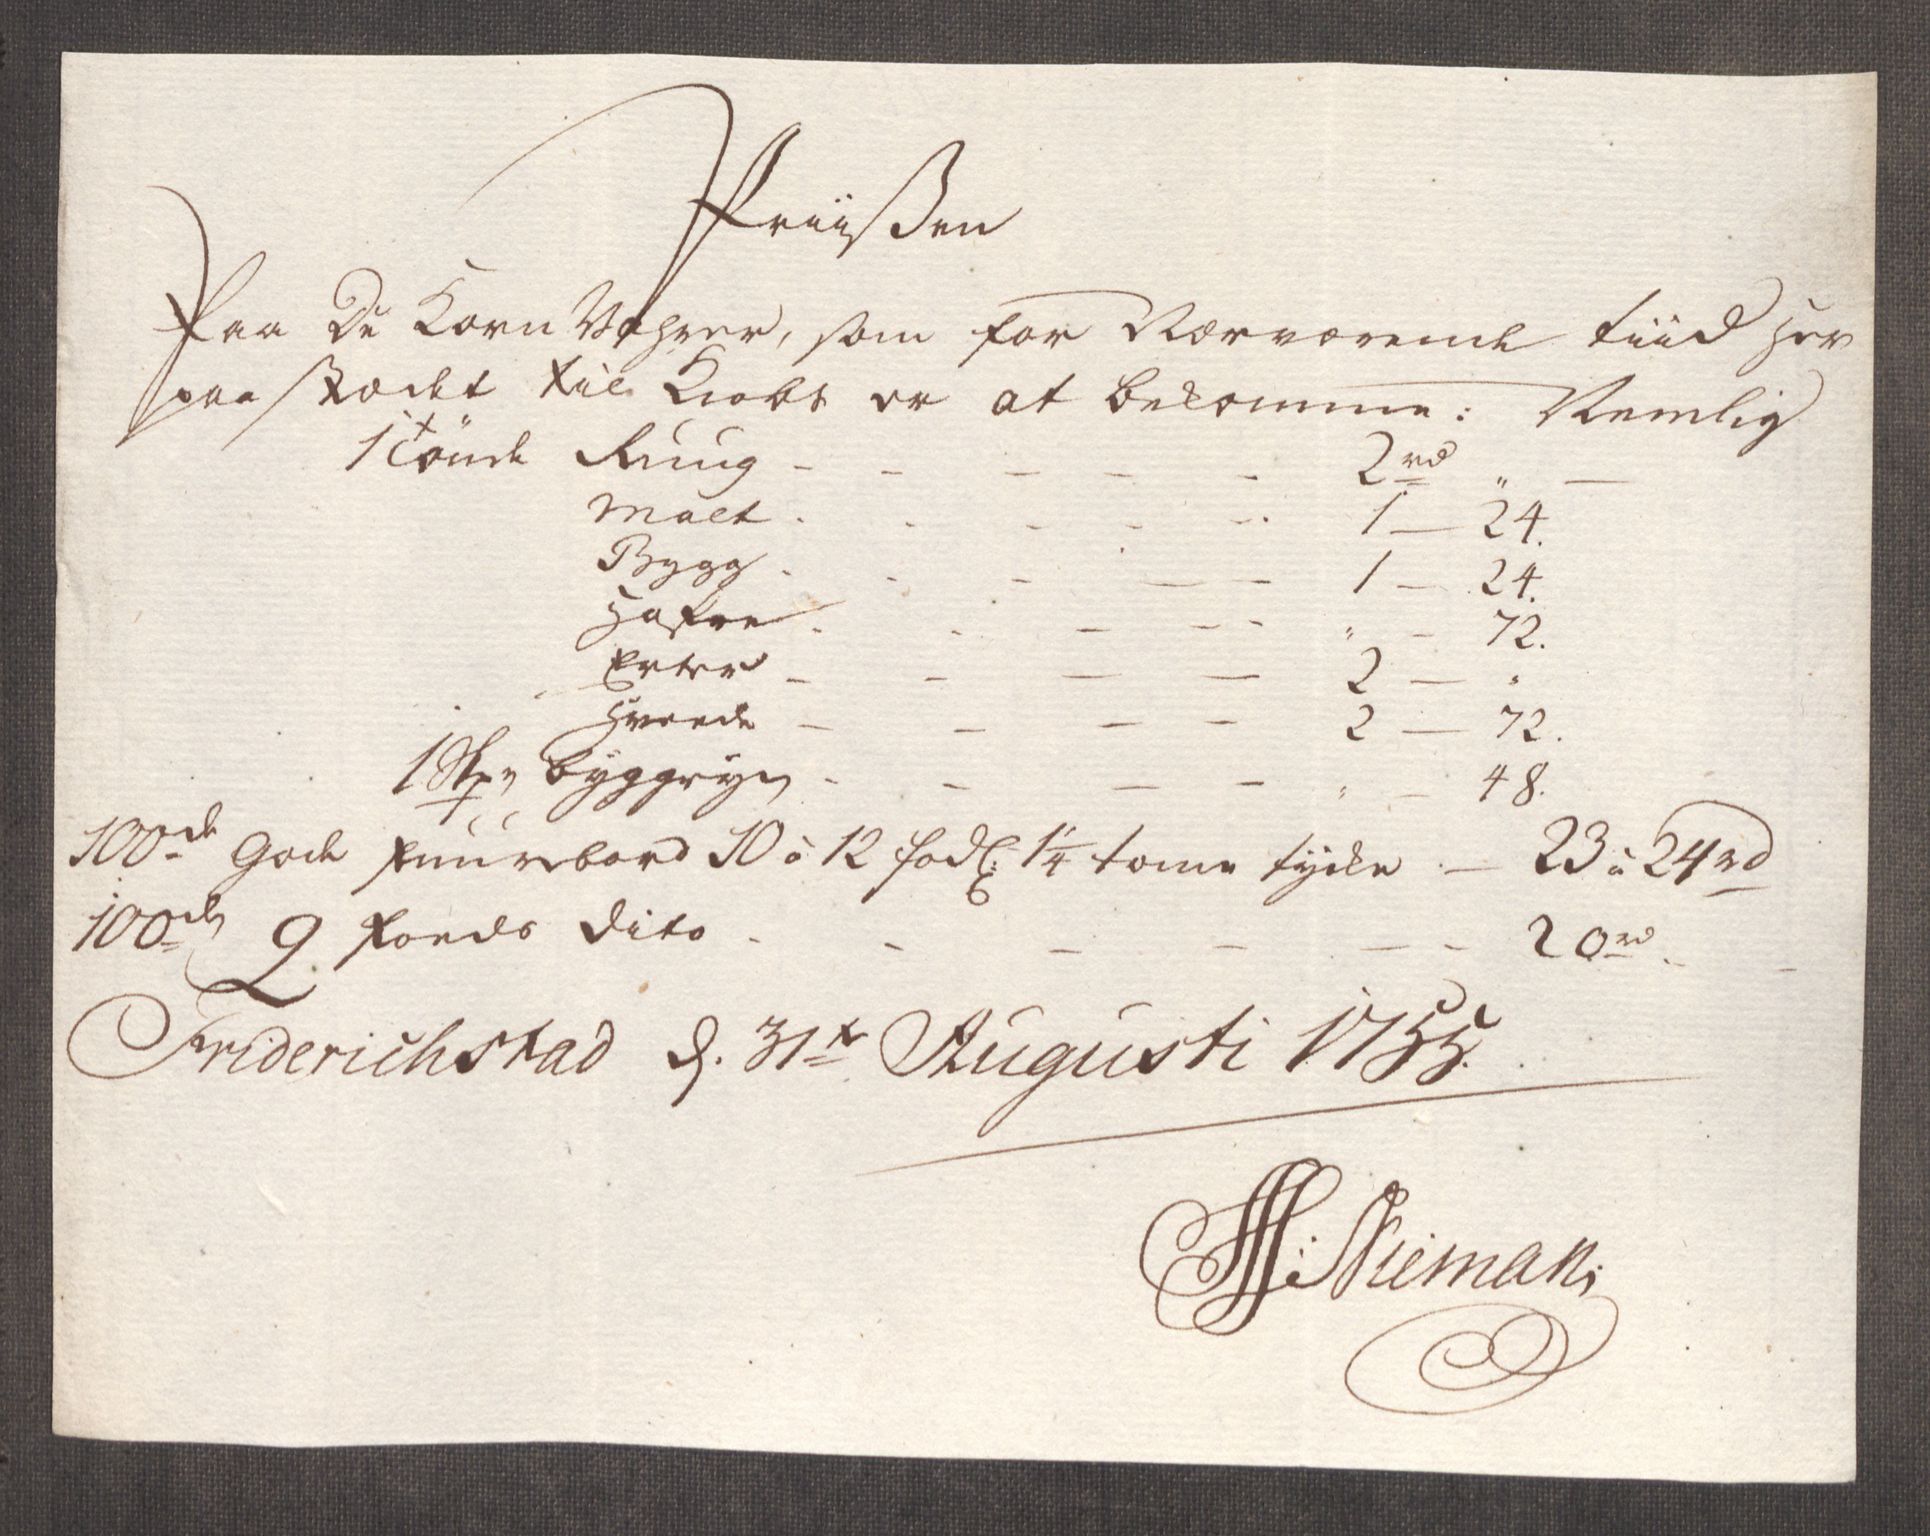 Priisen
Paa De Korn Vahrer, som for Nærværende tiid her
paa stædet til Kiøbs er at bekomme: Nemlig
1 tønde Ruug - - - - - 2 rd " -
Malt - - - - - 1 - 24.
Bygg - - - - - 1 - 24.
Hafre - - - - - " - 72.
Erter - - - - 2 - "
Hvede - - - - 2 - 72.
1 Skp Byggryn - - - - " - 48.
100de gode fuurebord 10 à 12 fod 1¼ tome tycke - 23 à 24 rd
100de 9 foeds dito - - - - - - 20 rd.
Friderichstad d. 31te Augusti 1755.
Nieman